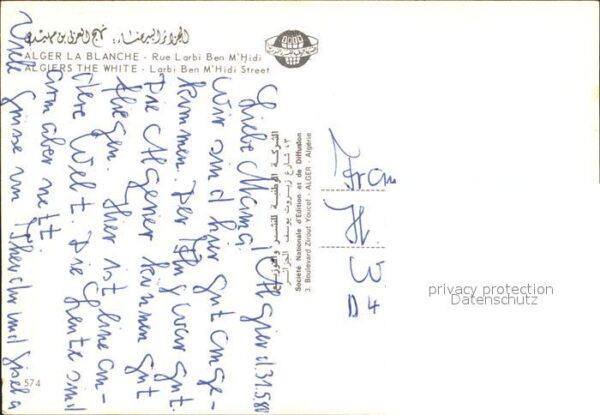 الجزائر البيضاء: نهج العربي بن مهيدي
ALGER LA BLANCHE - Rue Larbi Ben M'Hidi
ALGIERS THE WHITE - Larbi Ben M'Hidi Street
Algier d. 31.5.80
Liebe Mama!
Wir sind hier gut ange-
kommen. Der Flug war gut.
Die Algerier können gut
fliegen. Hier ist eine an-
dere Welt. Die Leute sind
arm aber nett.
Viele Grüsse von Theradur und Gisela
الشركة الوطنية للنشر والتوزيع
٣، شارع زيروت يوسف الجزائر
Société Nationale d'Edition et de Diffusion
3, Boulevard Zirout Youcef - ALGER - Algérie
Frau
H.
3
D 4
574
privacy protection
Datenschutz